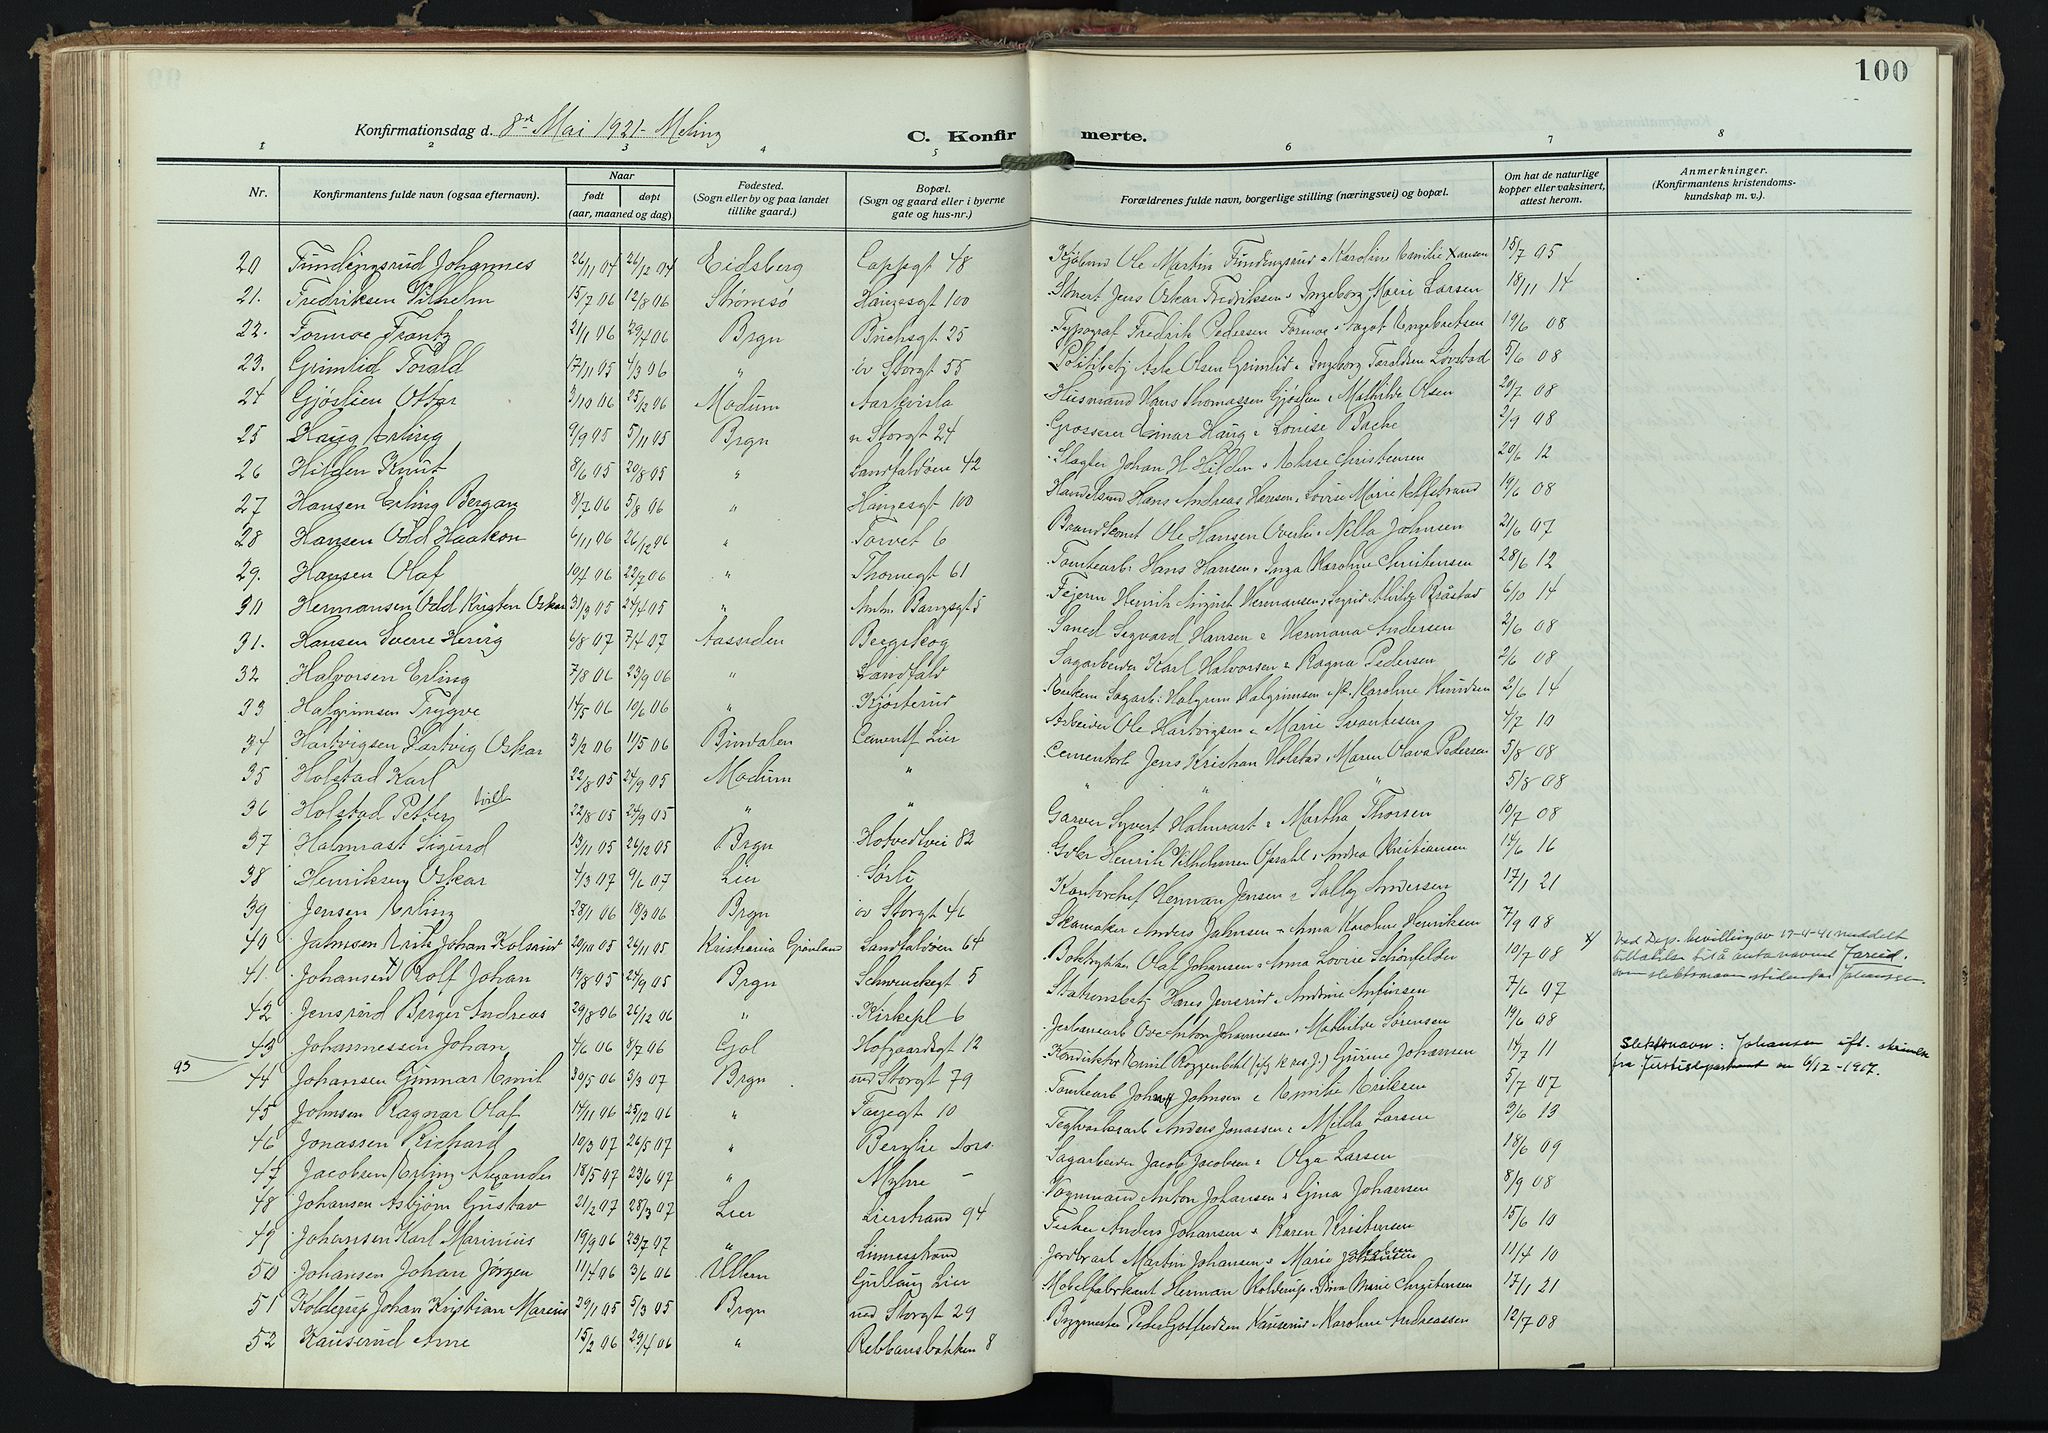 100
Konfirmationsdag d. 8de Mai 1921 - Meling
C. Konfirmerte.
1 2 3 4 5 6 7 8
Nr. Konfirmantens fulde navn (ogsaa efternavn). Naar født døpt (aar, maaned og dag) Fødested. (Sogn eller by og paa landet tillike gaard.) Bopæl. (Sogn og gaard eller i byerne gate og hus-nr.) Forældrenes fulde navn, borgerlige stilling (næringsvei) og bopæl. Om hat de naturlige kopper eller vaksinert, attest herom. Anmerkninger. (Konfirmantens kristendomskundskap m. v.).
20 Fundingsrud Johannes 26/11 04 26/12 04 Eidsberg Cappsgt 48 Kjøbmd Ole Martin Fundingsrud & Karoline Emilie Hansen 15/7 05
21. Fredriksen Vilhelm 15/7 06 12/8 06 Strømsø Haugesgt 100 Jens Oskar Fredriksen & Ingeborg Marie Larsen 18/11 14
22. Formoe Frantz 21/1 06 29/7 06 Brgn Buchsgt 25 Typograf Fredrik Pedersen Formoe & Engebretsen 19/6 08
23. Grimlid Torald 17/11 05 4/3 06 " öv Storgt 55 Politibetj Asle Olsen Grimlid & Ingeborg Taraldsen Løvstad 5/6 08
24 Gjøslien Ottar 3/10 06 25/12 06 Modum Husmand Hans Thomassen Gjøslien & Mathilde Olsen 20/7 08
25 Haug Erling 9/9 05 5/11 05 Brgn n Storgt 24 Grosserer Einar Haug & Louise Bache 2/9 08
26 Hilden Knut 8/6 05 20/8 05 " Landfaldöen 42 Slagter Johan H Hilden & Christensen 20/6 12
27 Hansen Erling Bergan 8/7 06 5/8 06 " Haugesgt 100 Handelsmd Hans Andreas Hansen & Lovise Marie Elfstrand 19/6 08
28 Hansen Odd Haakon 6/11 06 26/12 06 " Torvet 6 Brandkonst Ole Hansen Overlie & Nella Johnsen 21/6 07
29. Hansen Olaf 10/4 06 22/7 06 " Thornegt 61 Tomtearb Hans Hansen & Inga Karoline Christensen 28/6 12
30 Hermansen Odd Kristen Oskar 31/3 05 24/4 05 " Amtm Bangsgt 5 Fejerm Henrik August Hermansen & Sigrid Råstad 6/10 14
31. Hansen Sverre Henrig 6/8 07 7/4 07 Aassiden Bergskog Sigvard Hansen & Hermana Andersen 2/6 08
32 Halvorsen Erling 7/8 06 23/9 06 " Landfald Sagarbeider Karl Halvorsen & Ragna Pedersen 2/6 08
33 Halgrimsen Trygve 14/5 06 10/6 06 " Kjøsterud Sagarb: Halgrim Halgrimsen & Karoline Knudsen 2/6 14
34 Hartvigsen Hartvig Oskar 3/2 06 11/5 06 Bindalen Cementf Lier Arbeider Ole Hartvigsen & Marie Svantesen 4/7 10
35 Holstad Karl 22/8 05 24/9 05 Modum " Cementarb Jens Kristian Holstad & Maren Olava Pedersen 5/8 08
36 Holstad Petter tvill 22/8 05 24/9 05 " " " " 5/8 08
37 Halmrast Sigurd 13/11 05 26/12 05 Brgn Hotvedtvei 82 Garver Syvert Halmrast & Martha Thorsen 10/7 08
38 Henriksen Oskar 4/3 07 9/6 07 Lier Sørli Henrik Vilhelmsen Opsahl & Andrea Kristiansen 14/6 16
39 Jensen Erling 28/1 06 18/3 06 Brgn öv Storgt 46 Kontorchef Herman Jensen & Sally Andersen 17/1 21
40 Jahnsen Erik Johan Kolsrud 20/10 05 26/11 05 Kristiania Grønland Landfaldöen 64 Skomaker Anders Jahnsen & Anna Karoline Henriksen 7/9 08
41 Johansen x) Rolf Johan 19/8 05 24/9 05 Brgn Schwenckegt 5 Boktrykker Olaf Johansen & Anna Lovise Schönfelder 10/7 08
x) Ved Dep. bevilling av 17-4-41 meddelt
tillatelse til å anta navnet Fareid.
som slektsnavn istedenfor Johansen.
42 Jensrud Birger Andreas 29/8 06 26/12 06 " Kirkepl 6 Stationsbetj Hans Jensrud & Andrine Anfinsen 7/6 07
43 Johannessen Johan 4/6 06 8/7 06 Gol Hofgaardsgt 12 Jerbanearb Ove Anton Johannessen & Mathilde Sørensen 19/6 08
93
44 Johansen Gunnar Emil 30/5 06 3/3 07 Brgn ned Storgt 79 Konduktör Emil Roggenbihl & Gurine Johansen 14/7 11
Slektsnavn: Johansen ifl. skrivelse
fra Justisdepartement av 6/12-1967.
45 Johnsen Ragnar Olaf 14/11 06 25/12 06 " Tossegt 10 Tomtearb Johnsen & Emilie Eriksen 5/7 07
46 Jonassen Richard 10/3 07 26/5 07 " Berglie Aas. Teglverksarb Anders Jonassen & Milda Larsen 3/6 13
47 Jacobsen Erling Alexander 18/5 07 23/6 07 " Myhre - Sagarbeider Jacob Jacobsen & Olga Larsen 18/6 09
48 Johansen Asbjørn Gustav 21/2 07 28/3 07 Lier Lierstrand 94 Vognmand Anton Johansen & Gina Johansen 8/9 08
49 Johansen Karl Marinius 19/9 06 23/7 07 " Linnesstrand Fisker Anders Johansen & Karen Kristensen 15/6 10
50 Johansen Johan Jørgen 11/4 06 3/6 06 Ullern Gullaug Lier Jordbrarb Martin Johansen & Marie Jakobsen 11/4 10
51 Kolderup Johan Kristian Marius 29/1 05 5/3 05 Brgn ned Storgt 29 Møbelfabrikant Herman Kolderup & Dina Marie Christensen 17/1 21
52 Kauserud Arne 15/2 06 29/4 06 " Rebbansbakken 8 Bygmester Peder Gotfredsen Kauserud & Karoline Andreassen 12/7 08